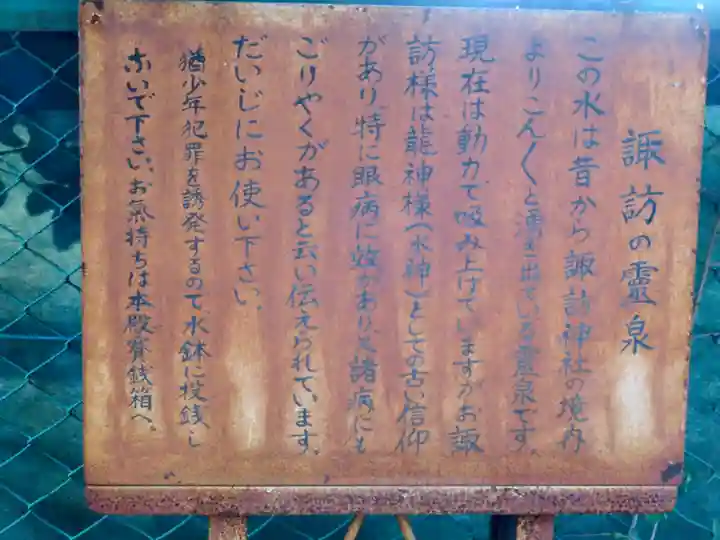 諏訪の靈泉
この水は昔から諏訪神社の境内
よりこん〱と湧き出ている靈泉です、
現在は動力で吸み上げていますがお諏
訪様は龍神様(水神)としての古い信仰
があり、特に眼病に效があり、又諸病にも
ごりやくがあると云い伝えられています、
だいじにお使い下さい、
猶少年犯罪を誘発するので水鉢に投銭し
ないで下さい、お氣持ちは本殿賽銭箱へ、